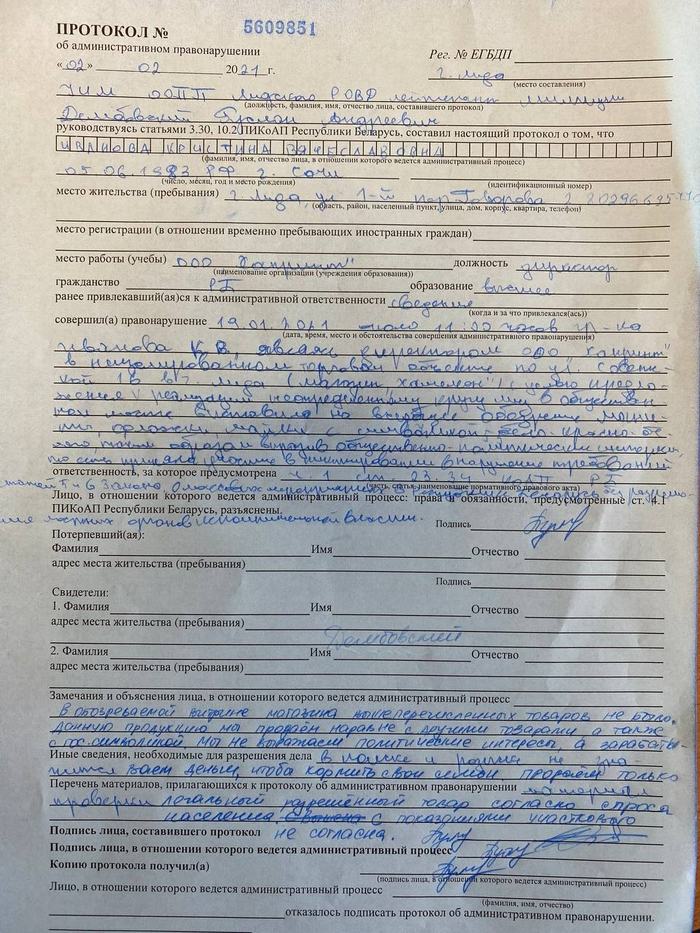 ПРОТОКОЛ № 5609851
об административном правонарушении
Рег. № ЕГБДП
«02» 02 2021 г.
г. Лида
(место составления)
УИМ ООПП Лидского РОВД лейтенант милиции
(должность, фамилия, имя, отчество лица, составившего протокол)
Дембовский Андреевич
руководствуясь статьями 3.30, 10.2 ПИКоАП Республики Беларусь, составил настоящий протокол о том, что
ИВАНОВА КРИСТИНА ВЯЧЕСЛАВОВНА
(фамилия, имя, отчество лица, в отношении которого ведется административный процесс)
05.06.1983 РФ г. Сочи
(число, месяц, год и место рождения)
(идентификационный номер)
место жительства (пребывания) г. Лида, ул. 1-й пер. Говорова 2
(область, район, населенный пункт, улица, дом, корпус, квартира, телефон)
место регистрации (в отношении временно пребывающих иностранных граждан)
место работы (учебы) ООО
должность директор
(наименование организации (учреждения образования))
гражданство РБ образование высшее
ранее привлекавший(ая)ся к административной ответственности сведения
(когда и за что привлекался(ась))
совершил(а) правонарушение 19.01.2021 около 11:00 часов гр-ка
(дата, время, место и обстоятельства совершения административного правонарушения)
Иванова К.В., являясь директором ООО
в торговом по ул. Советс-
кой 18 в г. Лида (магазин "Хамелеон") с целью предло-
жения к реализации неопределенному кругу лиц в общественн-
ом месте выставила на всеобщее обозрение
майки с символикой бело-красно-бе-
таким образом выразив общественно-политические интересы,
то есть приняла участие в пикетировании в нарушение требований
ответственность, за которое предусмотрена ч. 1 ст. 23.34 КоАП РБ
(часть, статья, наименование нормативного правового акта)
Закона О массовых мероприятиях в Республике Беларусь
Лицо, в отношении которого ведется административный процесс: права и обязанности, предусмотренные ст. 4.1
ПИКоАП Республики Беларусь, разъяснены.
местных органов исполнительной власти.
Подпись
Потерпевший(ая):
Фамилия Имя Отчество
адрес места жительства (пребывания)
Подпись
Свидетели:
1. Фамилия Имя Отчество
адрес места жительства (пребывания)
Дембовский
2. Фамилия Имя Отчество
адрес места жительства (пребывания)
Замечания и объяснения лица, в отношении которого ведется административный процесс
В обозреваемой витрине магазина вышеперечисленных товаров не было.
Данную продукцию мы продаём наравне с другими товарами, а также
с гос.символикой. Мы не выражаем политические интересы, а зарабаты-
Иные сведения, необходимые для разрешения дела в поиске и розыске не зна-
чится
ваем деньги, чтобы кормить свои семьи, продаётся только
Перечень материалов, прилагающихся к протоколу об административном правонарушении материал
проверки
легальный разрешённый товар согласно спроса
населения. С показаниями участкового
Подпись лица, составившего протокол
не согласна.
Подпись лица, в отношении которого ведется административный процесс
Копию протокола получил(а)
(подпись лица, в отношении которого ведется административный процесс)
Лицо, в отношении которого ведется административный процесс
(фамилия, имя, отчество)
отказалось подписать протокол об административном правонарушении.